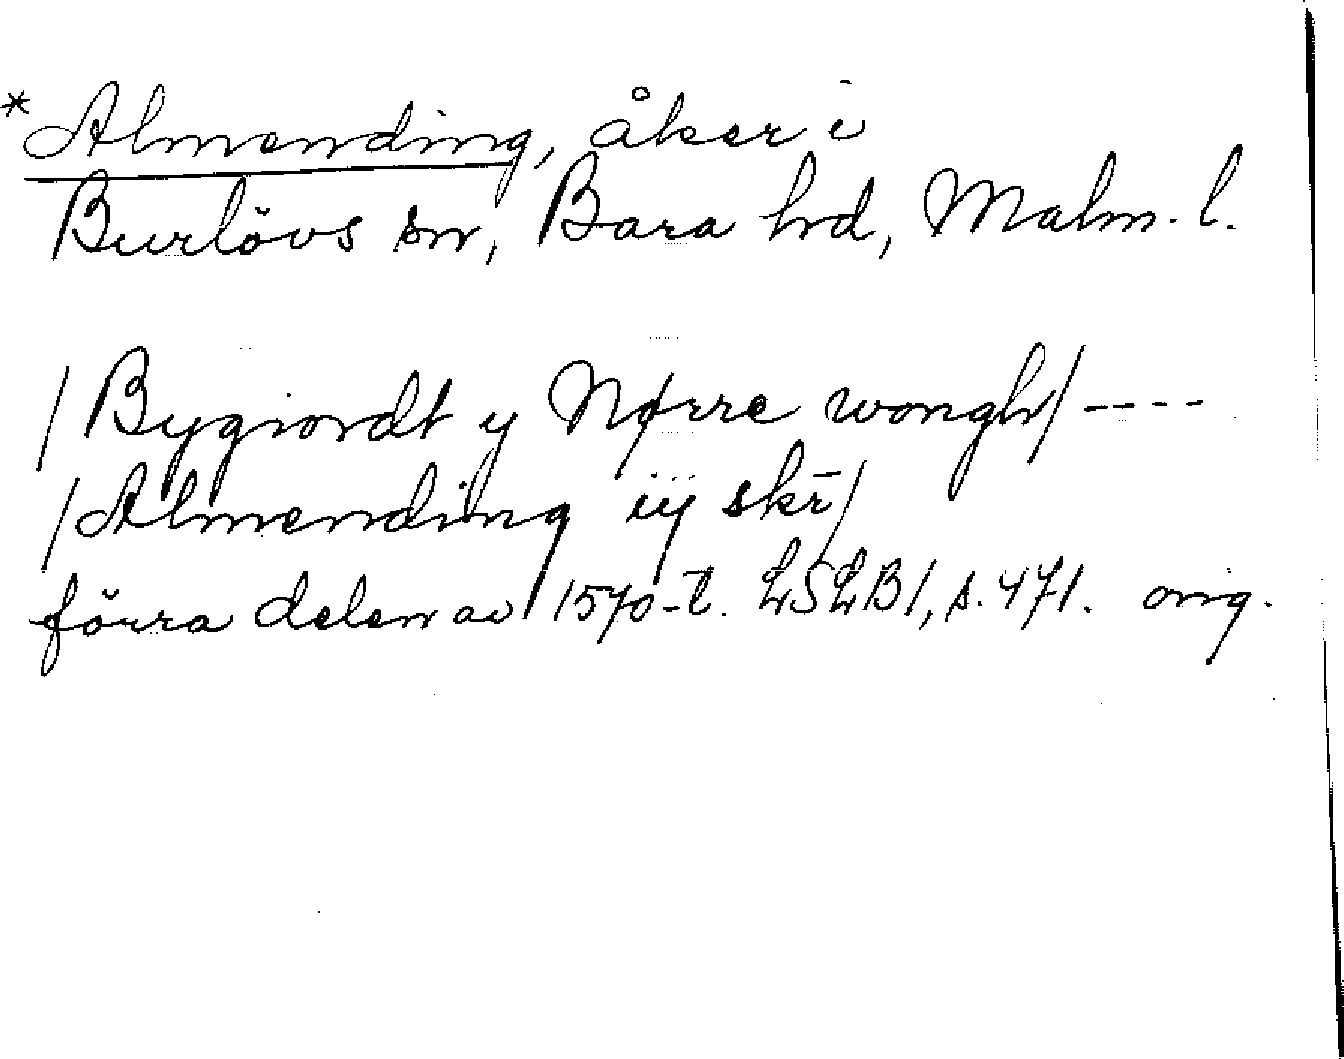 *Almending, åker i
Burlövs sn, Bara hd, Malm. l.
/Bygiordt y Nørre wongh/----
/Almending iij skr̄/
förra delen av 1570-t. LSLB1, s. 471. orig.